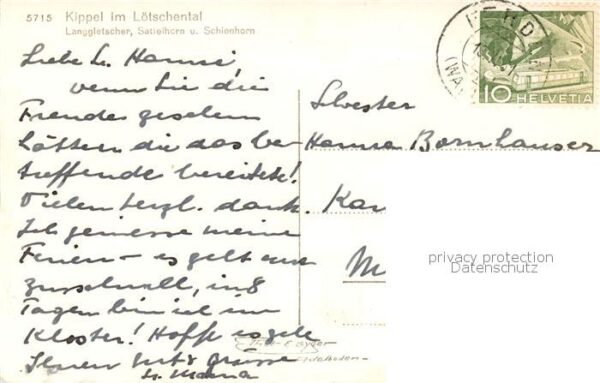 5715 Kippel im Lötschental
Langgletscher, Sattelhorn u. Schienhorn
Liebe L. Hanni,
wenn Sie die
Freude gesehen
hätten die das be-
treffende bereitete!
Vielen herzl. dank.
Ich geniesse meine
Ferien - es geht nur
zu schnell, in 8
Tagen bin ich im
Kloster! Hoffe es gehe
Ihnen gut & Grüsse
FERD
(WA
10 HELVETIA
Schwester
Hanna Bornhauser
Kan
M
privacy protection
Datenschutz
Adelboden